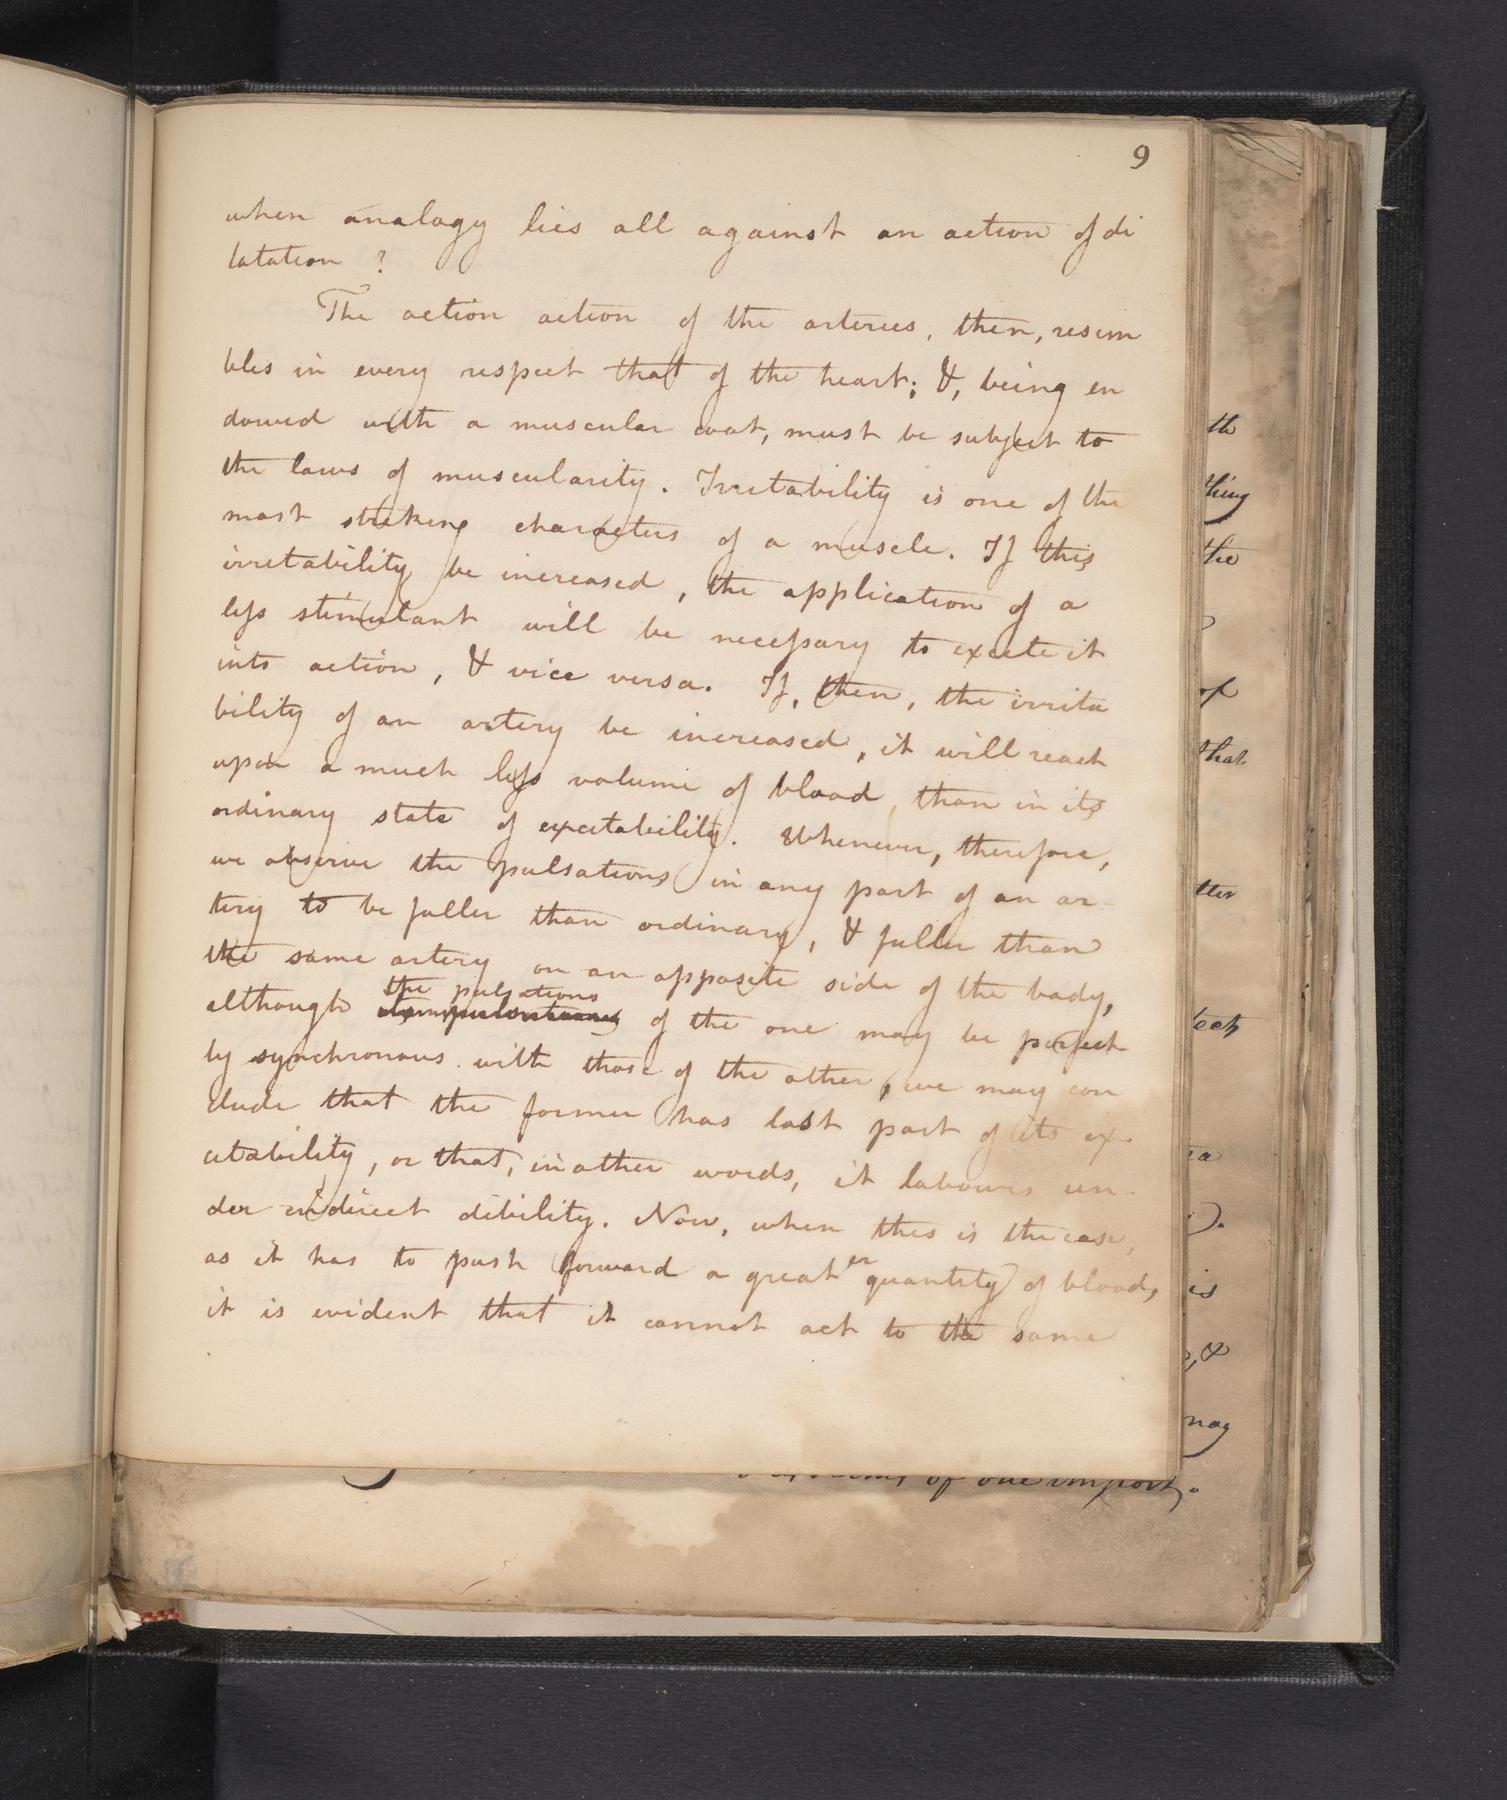 9
when analogy lies all against an action of di
latation ?
The action action of the arteries, then, resem
bles in every respect that of the heart; &, being en
dowed with a muscular coat, must be subject to
the laws of muscularity. Irritability is one of the
most striking characters of a muscle. If this
irritability be increased, the application of a
less stimulant will be necessary to excite it
into action, & vice versa. If, then, the irrita
bility of an artery be increased, it will react
upon a much less volume of blood, than in its
ordinary state of excitability. Whenever, therefore,
we observe the pulsations in any part of an ar-
tery to be fuller than ordinary, & fuller than
the same artery on an opposite side of the body,
the pulsations
although of the one may be perfect
ly synchronous with those of the other, we may con
clude that the former has lost part of its ex-
citability, or that, in other words, it labours un-
der indirect debility. Now, when this is the case,
as it has to push forward a greater quantity of blood,
it is evident that it cannot act to the same
th
thing
the
of
that
tter
is
, &
may
of one import.